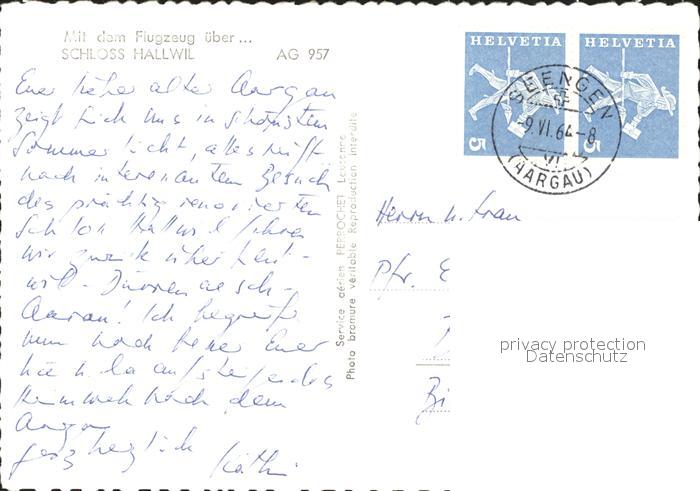 Mit dem Flugzeug über...
SCHLOSS HALLWIL AG 957
Euer lieber alter Aargau
zeigt sich uns in schönstem
Sommer licht, alles reift
nach interessantem Besuch
des prächtig renovierten
Schloss Hallwil fahren
wir zurück über
wil - Dürrenäsch -
Aarau! Ich begreife
nun noch besser Euer
hie u. da aufsteigendes
Heimweh nach dem
Aargau
ganz herzlich Käthi
Service aérien PERROCHET Lausanne
Photo bromure véritable Reproduction interdite
HELVETIA
5
HELVETIA
5
SEENGEN
9.VI.64-8
VI
(AARGAU)
Herrn u. Frau
Pfr. E
Bi
privacy protection
Datenschutz